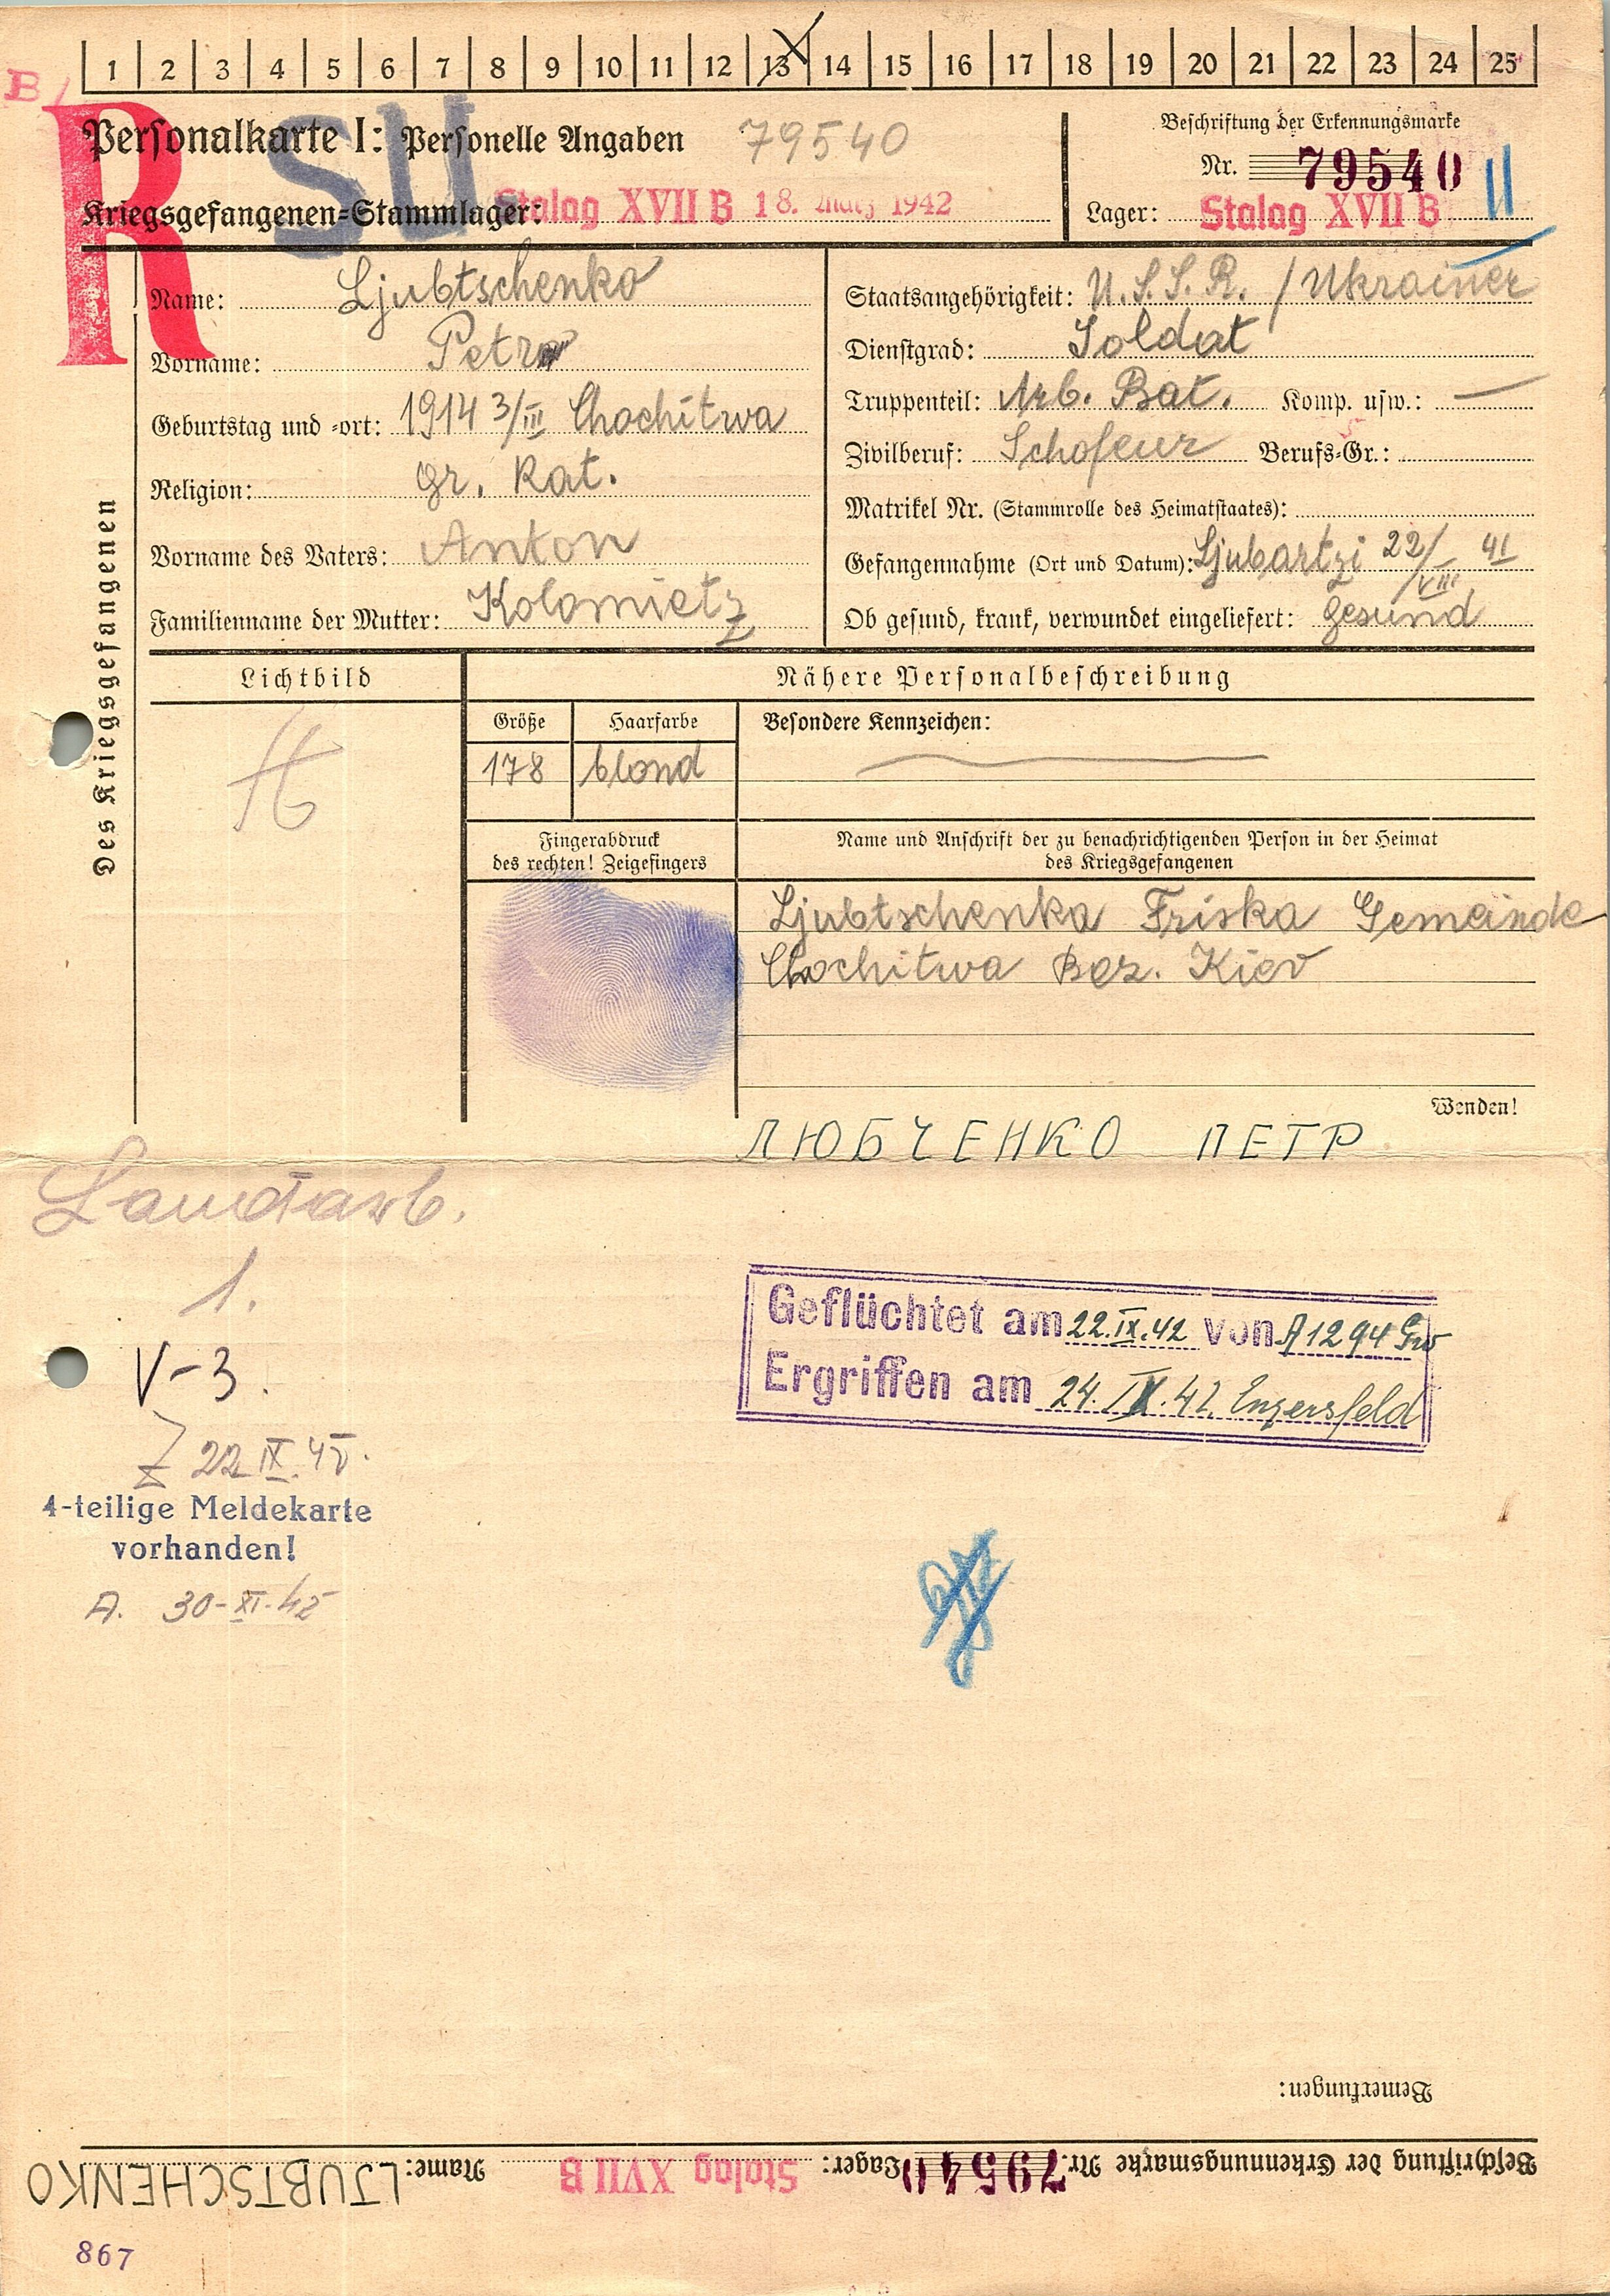 1 2 3 4 5 6 7 8 9 10 11 12 13 14 15 16 17 18 19 20 21 22 23 24 25
B
R SU
Personalkarte I: Personelle Angaben 79540
Kriegsgefangenen-Stammlager: Stalag XVII B 18. März 1942
Beschriftung der Erkennungsmarke
Nr. 79540 II
Lager: Stalag XVII B
Des Kriegsgefangenen
Name: Ljubtschenko
Vorname: Petro
Geburtstag und -ort: 1914 3/III Chochitwa
Religion: gr. Kat.
Vorname des Vaters: Anton
Familienname der Mutter: Kolomietz
Staatsangehörigkeit: U.S.S.R. / Ukrainer
Dienstgrad: Soldat
Truppenteil: Arb. Bat. Komp. usw.: —
Zivilberuf: Schofeur Berufs-Gr.:
Matrikel Nr. (Stammrolle des Heimatstaates):
Gefangennahme (Ort und Datum): Ljubartzi 22/VIII 41
Ob gesund, krank, verwundet eingeliefert: gesund
Lichtbild
Nähere Personalbeschreibung
Größe Haarfarbe Besondere Kennzeichen:
178 blond
Fingerabdruck
des rechten! Zeigefingers
Name und Anschrift der zu benachrichtigenden Person in der Heimat
des Kriegsgefangenen
Ljubtschenka Friska Gemeinde
Chochitwa Bez. Kiev
Wenden!
ЛЮБЧЕНКО ПЕТР
Landarb.
1.
V-3.
Z 22 IX. 42.
4-teilige Meldekarte
vorhanden!
A. 30-XI-42
Geflüchtet am 22.IX.42 von A1294 Gw
Ergriffen am 24.IX.42 Enzersfeld
Bemerkungen:
Beschriftung der Erkennungsmarke Nr. 79540 Lager: Stalag XVII B Name: LJUBTSCHENKO
867